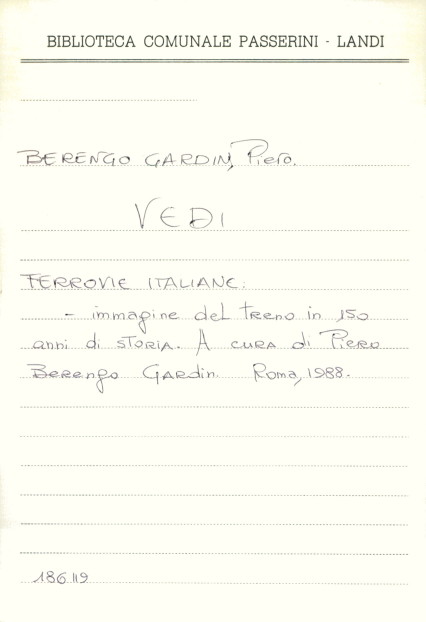 BIBLIOTECA COMUNALE PASSERINI - LANDI
BERENGO GARDIN, Piero.
VEDI
FERROVIE ITALIANE:
- immagine del treno in 150
anni di STORIA. A CURA di PIERO
Berengo GARDIN. Roma, 1988.
186119